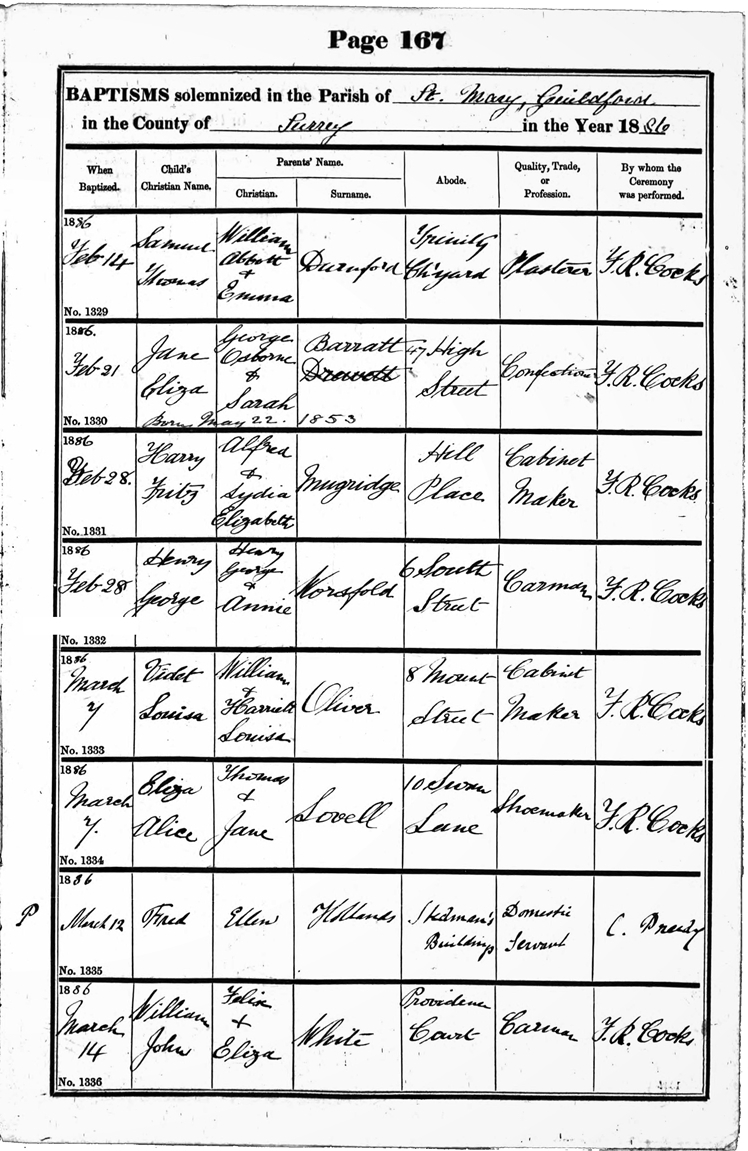 Page 167
BAPTISMS solemnized in the Parish of St. Mary, Guildford
in the County of Surrey in the Year 1886
When Baptized.
Child's Christian Name.
Parents' Name.
Christian.
Surname.
Abode.
Quality, Trade, or Profession.
By whom the Ceremony was performed.
1886
Feb 14
Samuel Thomas
William Abbott & Emma
Durnford
Trinity Ch'yard
Plasterer
F. R. Cocks
No. 1329
1886.
Feb 21
Jane Eliza
George Osborne & Sarah
Barratt
Drewett
47 High Street
Confectioner
F. R. Cocks
Born May 22. 1853
No. 1330
1886
Feb 28.
Harry Fritz
Alfred & Lydia Elizabeth
Mugridge
Hill Place
Cabinet Maker
F. R. Cocks
No. 1331
1886
Feb 28
Henry George
Henry George & Annie
Worsfold
6 South Street
Carman
F. R. Cocks
No. 1332
1886
March 7
Violet Louisa
William & Harriett Louisa
Oliver
8 Mount Street
Cabinet Maker
F. R. Cocks
No. 1333
1886
March 7.
Eliza Alice
Thomas & Jane
Lovell
10 Swan Lane
Shoemaker
F. R. Cocks
No. 1334
P
1886
March 12
Fred
Ellen
Hollands
Stedman's Buildings
Domestic Servant
C.
No. 1335
1886
March 14
William John
Felix & Eliza
White
Providence Court
Carman
F. R. Cocks
No. 1336